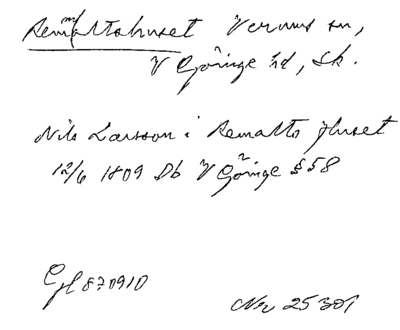 Remmaltshuset Verums sn,
V Göinge hd, Sk.
Nils Larsson i Remalts huset
12/6 1809 Db V Göinge § 58
Gfl 870910
Nr 25301